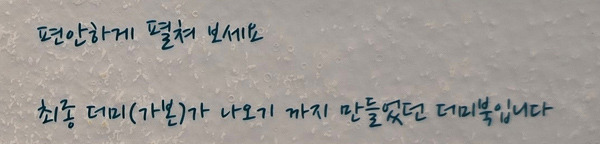 편안하게 펼쳐 보세요
최종 더미(가본)가 나오기 까지 만들었던 더미북입니다